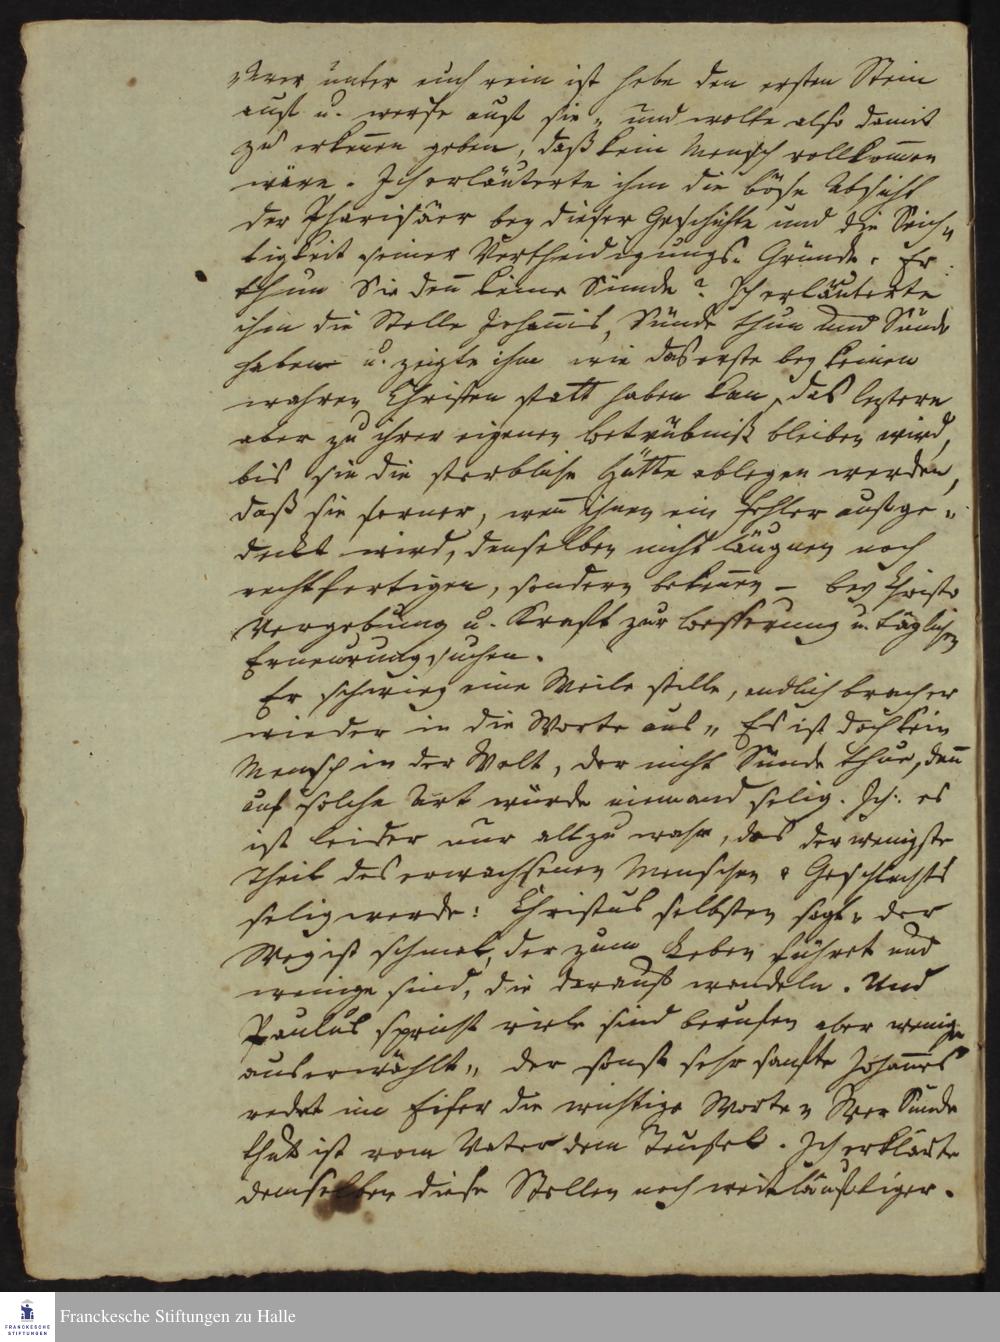 „Wer unter euch rein ist hebe den ersten Stein
auf u. werfe auf sie„ und wolte also damit
zu erkeñen geben, daß kein Mensch vollkom̄en
wäre. Ich erläuterte ihm die böse Absicht
der Pharisäer bey dieser Geschichte und die Seich„
tigkeit seiner Vertheidigungs„ Gründe. Er:
thun Sie deñ keine Sünde? Ich erläuterte
ihm die Stelle Johañis, Sünde thun und Sünde
haben u. zeigte ihm wie das erste bey keinen
wahren Christen statt haben kan, das leztere
aber zu ihrer eigenen Betrübniß bleiben wird,
bis sie die sterbliche Hütte ablegen werden,
daß sie ferner, weñ ihnen ein Fehler aufge„
dekt wird, denselben nicht läugnen noch
rechtfertigen, sondern bekeñen – bey Christo
Vergebung u. Kraft zur Besserung u. täglichen
Erneurung suchen.
Er schwieg eine Weile stille, endlich brach er
wieder in die Worte aus„ Es ist doch kein
Mensch in der Welt, der nicht Sünde thue, deñ
auf solche Art würde niemand selig. Ich: es
ist leider nur allzu wahr, das der wenigste
Theil des erwachsenen Menschen„ Geschlechts
selig werde: Christus selbsten sagt„ der
Weg ist schmal, der zum Leben führet und
wenige sind, die darauf wandeln. Und
Paulus spricht viele sind berufen aber wenige
auserwählt„ der sonst sehr sanfte Johañes
redet im Eifer die wichtige Worte„ Wer Sünde
thut ist vom Vater dem Teufel. Ich erklärte
demselben diese Stellen noch weitläuftiger.
Franckesche Stiftungen zu Halle
FRANCKESCHE
STIFTUNGEN